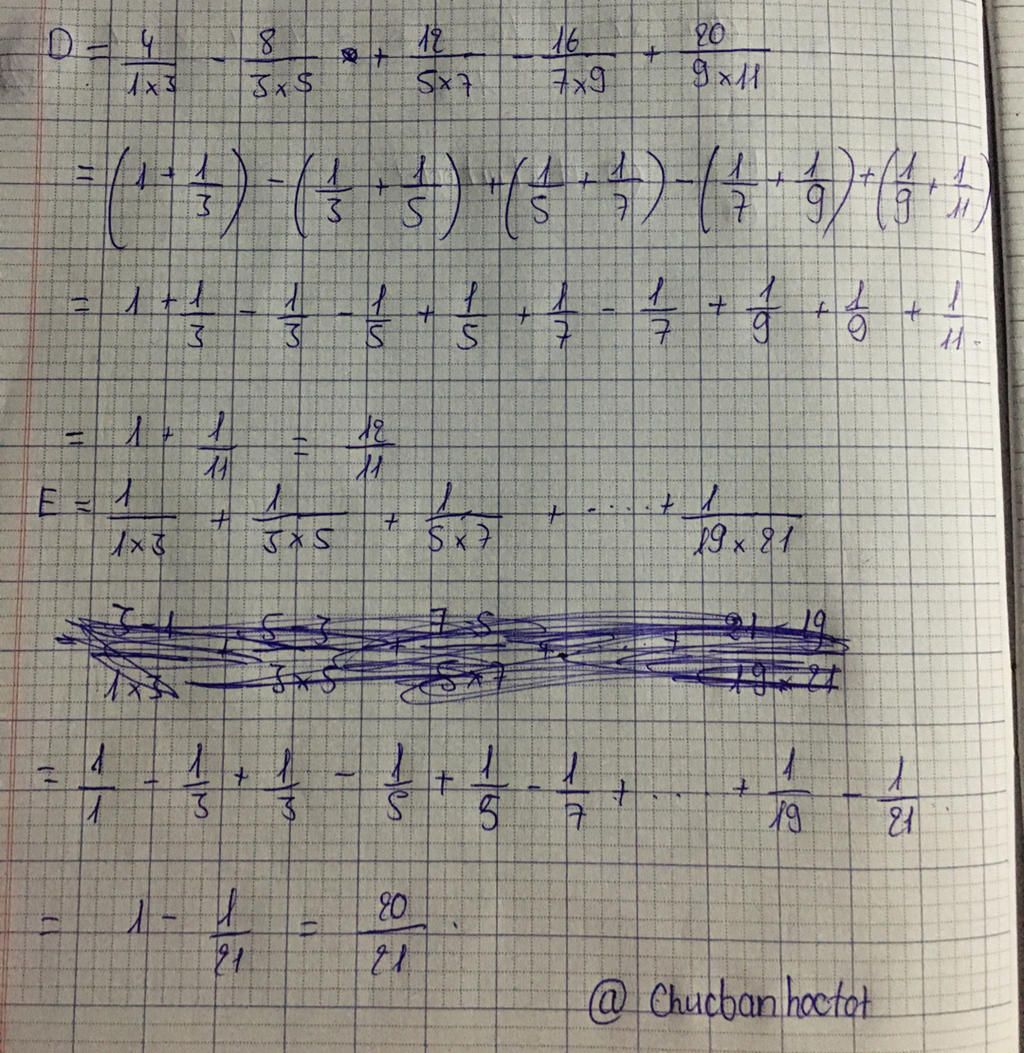 D = 4/(1×3) - 8/(3×5) + 12/(5×7) - 16/(7×9) + 20/(9×11)
= (1 + 1/3) - (1/3 + 1/5) + (1/5 + 1/7) - (1/7 + 1/9) + (1/9 + 1/11)
= 1 + 1/3 - 1/3 - 1/5 + 1/5 + 1/7 - 1/7 + 1/9 + 1/9 + 1/11
= 1 + 1/11 = 12/11
E = 1/(1×3) + 1/(3×5) + 1/(5×7) + ..... + 1/(19×21)
= (3-1)/(1×3) + (5-3)/(3×5) + (7-5)/(5×7) + ... + (21-19)/(19×21)
= 1/1 - 1/3 + 1/3 - 1/5 + 1/5 - 1/7 + .... + 1/19 - 1/21
= 1 - 1/21 = 20/21.
@ Chucbanhoctot